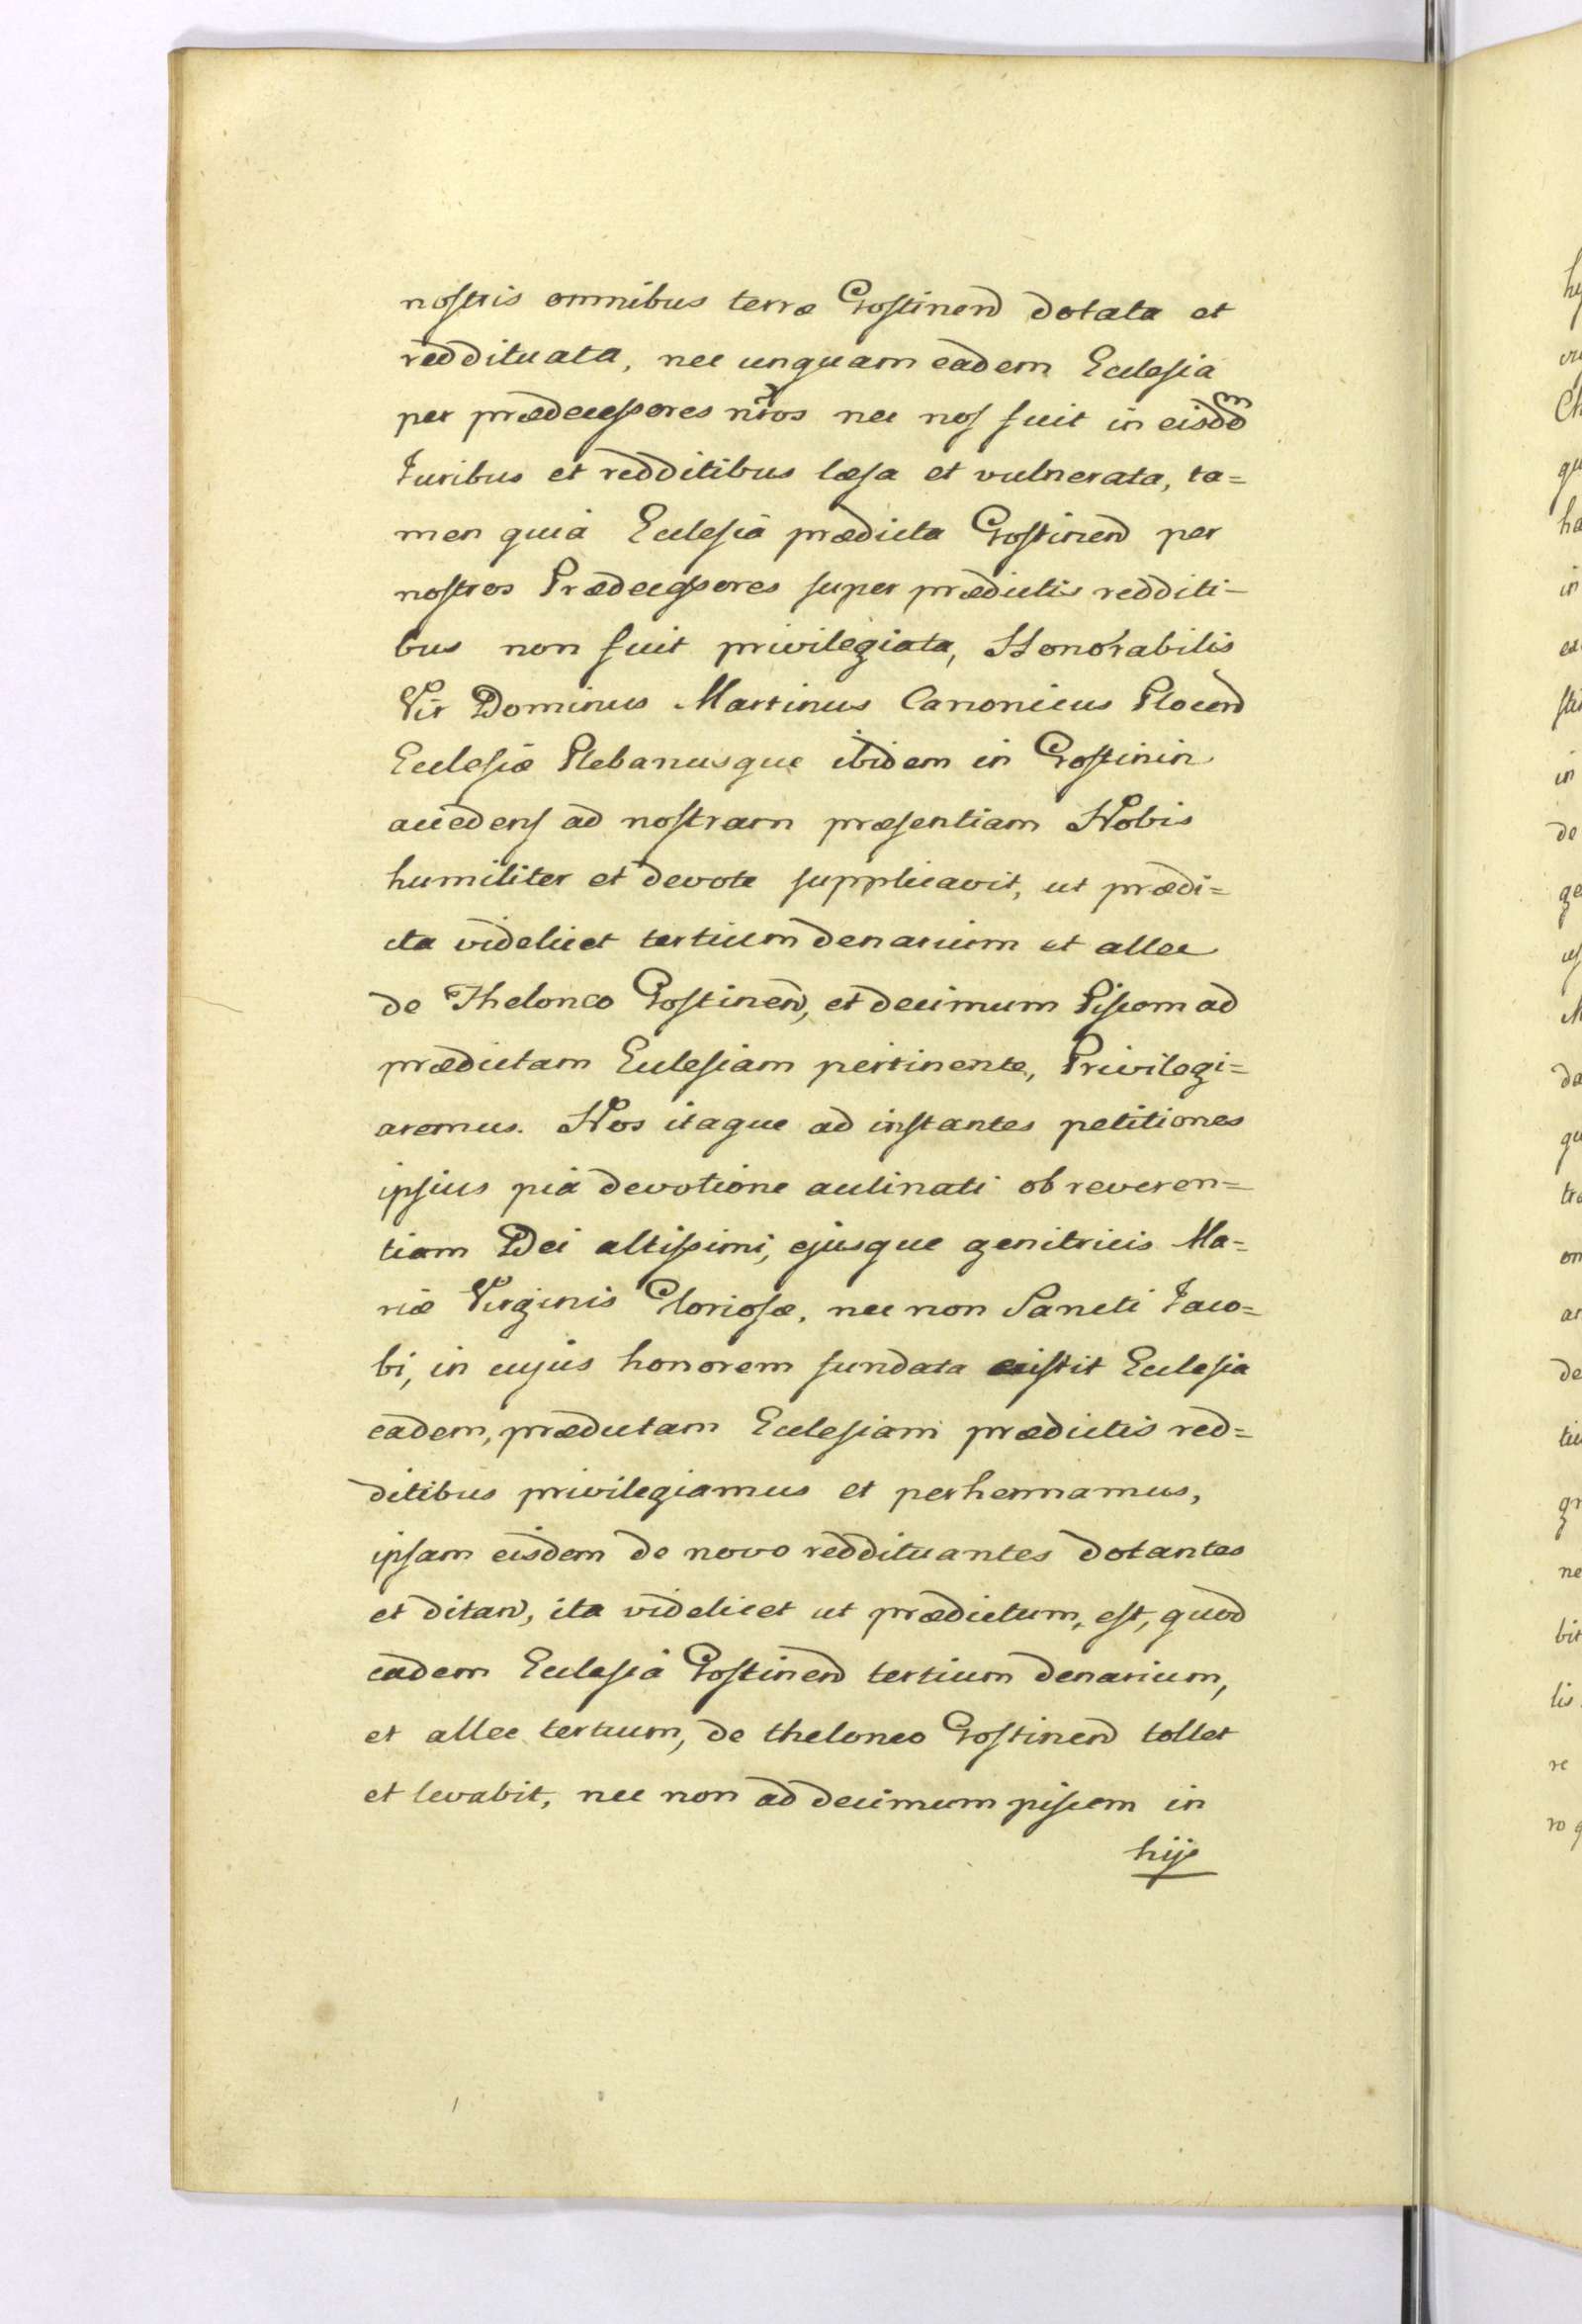 nostris omnibus terræ Gostinen dotata et
reddituata, nec unquam eadem Ecclesia
per prædecessores nros nec nos fuit in eisdem
Juribus et redditibus læsa et vulnerata, ta=
men quia Ecclesia prædicta Gostinen per
nostros Prædecessores super prædictis redditi-
bus non fuit privilegiata, Honorabilis
Vir Dominus Martinus Canonicus Plocen
Ecclesiæ Plebanusque ibidem in Gostinin
accedens ad nostram præsentiam Nobis
humiliter et devote supplicavit, ut prædi=
cta videlicet tertium denarium et allec
de Theloneo Gostinen, et decimum Piscem ad
prædictam Ecclesiam pertinente, Privilegi=
aremus. Nos itaque ad instantes petitiones
ipsius pia devotione aclinati ob reveren=
tiam Dei altissimi, ejusque genitricis Ma=
riæ Virginis Gloriosæ, nec non Sancti Jaco=
bi, in cujus honorem fundata existit Ecclesia
eadem, prædictam Ecclesiam prædictis red=
ditibus privilegiamus et perhennamus,
ipsam eisdem de novo reddituantes dotantes
et ditan, ita videlicet ut prædictum, est, quod
eadem Ecclesia Gostinen tertium denarium,
et allec tertium, de theloneo Gostinen tollet
et levabit, nec non ad decimum piscem in
hijs